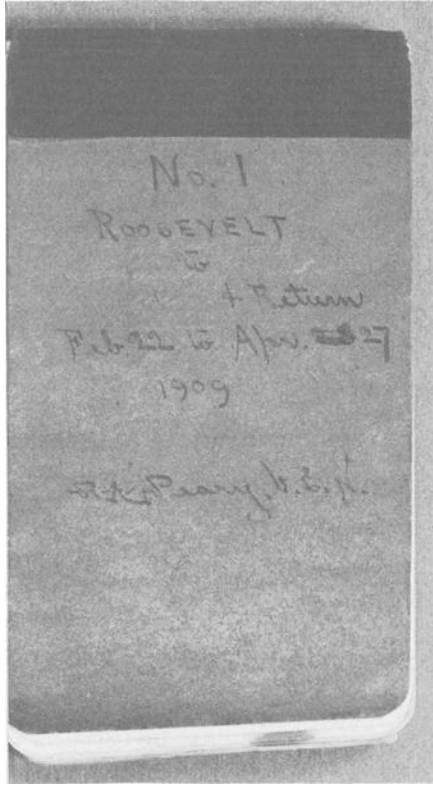 No. 1
ROOSEVELT
to
& Return
Feb. 22 to Apr. 27
1909
R.E. Peary, U.S.N.